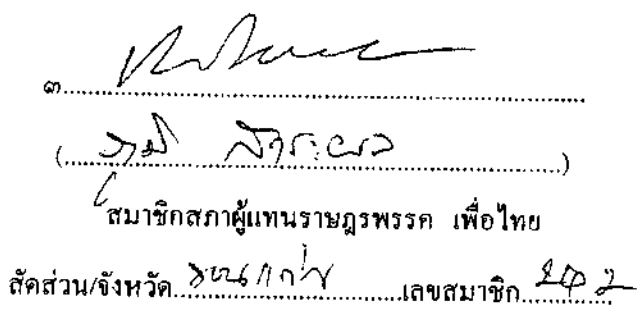 ๓
(ภูมิ สาระผล)
สมาชิกสภาผู้แทนราษฎรพรรค เพื่อไทย
สัดส่วน/จังหวัด ขอนแก่น เลขสมาชิก